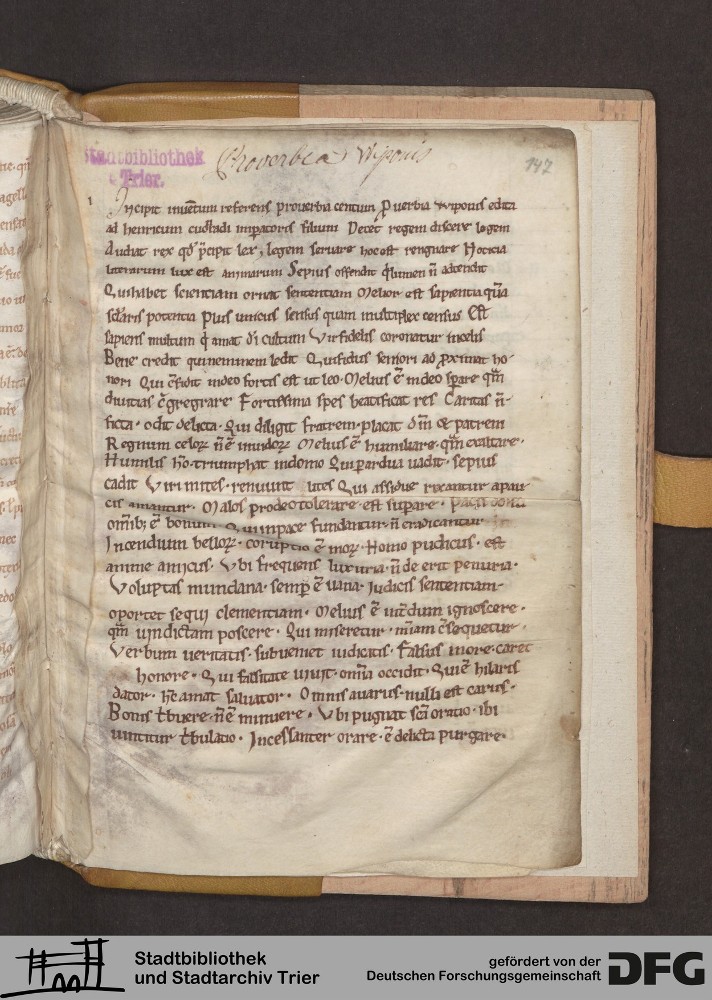 Stadtbibliothek
Trier.
Proverbia Wiponis
147
Incipit inuētum referens prouerbia centum Puerbia wiponis edita
ad heinricum cuonradi imperatoris filium Decet regem discere legem
Audiat rex qd pcipit lex, legem seruare hoc est rengnare Noticia
literarum lux est animarum Sepius offendit q lumen n̄ adtendit
Qui habet scientiam ornat sententiam Melior est sapientia quā
scłaris potentia Plus unicus sensus quam multiplex census Est
sapiens multum q amat dī cultum Vir fidelis coronatur in celis
Bene credit qui neminem ledit Qui fidus seniori ad pximat ho
nori Qui cfidit in deo fortis est ut leo · Melius ē in deo sperare qm̄
diuitias cgregrare Fortissima spes beatificat res Caritas n̄
ficta · odit delicta · Qui diligit fratrem · placat dm̄ & patrem
Regnum celoꝝ n̄ ē inmidoꝝ Melius ē humiliare · qm̄ exaltare ·
Humilis hō · triumphat in domo Qui p ardua uadit · sepius
cadit Viri mites · renuunt lites Qui assidue rixantur a pau
cis amantur · Malos pro deo tolerare · est supare ·
omib; ē bonum Qui in pace fundantur · n̄ eradicantur
Incendium belloꝝ · coruptio ē moꝝ · Homo pudicus · est
anime amicus · Vbi frequens luxuria · n̄ de erit penuria ·
Voluptas mundana · semp ē uana · Iudicis sententiam
oportet sequi clementiam · Melius ē int̄dum ignoscere ·
qm̄ uindictam poscere · Qui miseretur · mīam csequetur ·
Verbum ueritatis · subueniet iudicatis · Falsus in ore · caret
honore · Qui falsitate uiuit · omīa occidit · Qui ē hilaris
dator · hc amat saluator · Omnis auarus · nulli est carus ·
Bonis tbuere · n̄ ē minuere · Vbi pugnat scā oratio · ibi
uincitur tbulatio · Incessanter orare · ē delicta purgare ·
Stadtbibliothek
und Stadtarchiv Trier
gefördert von der
Deutschen Forschungsgemeinschaft
DFG